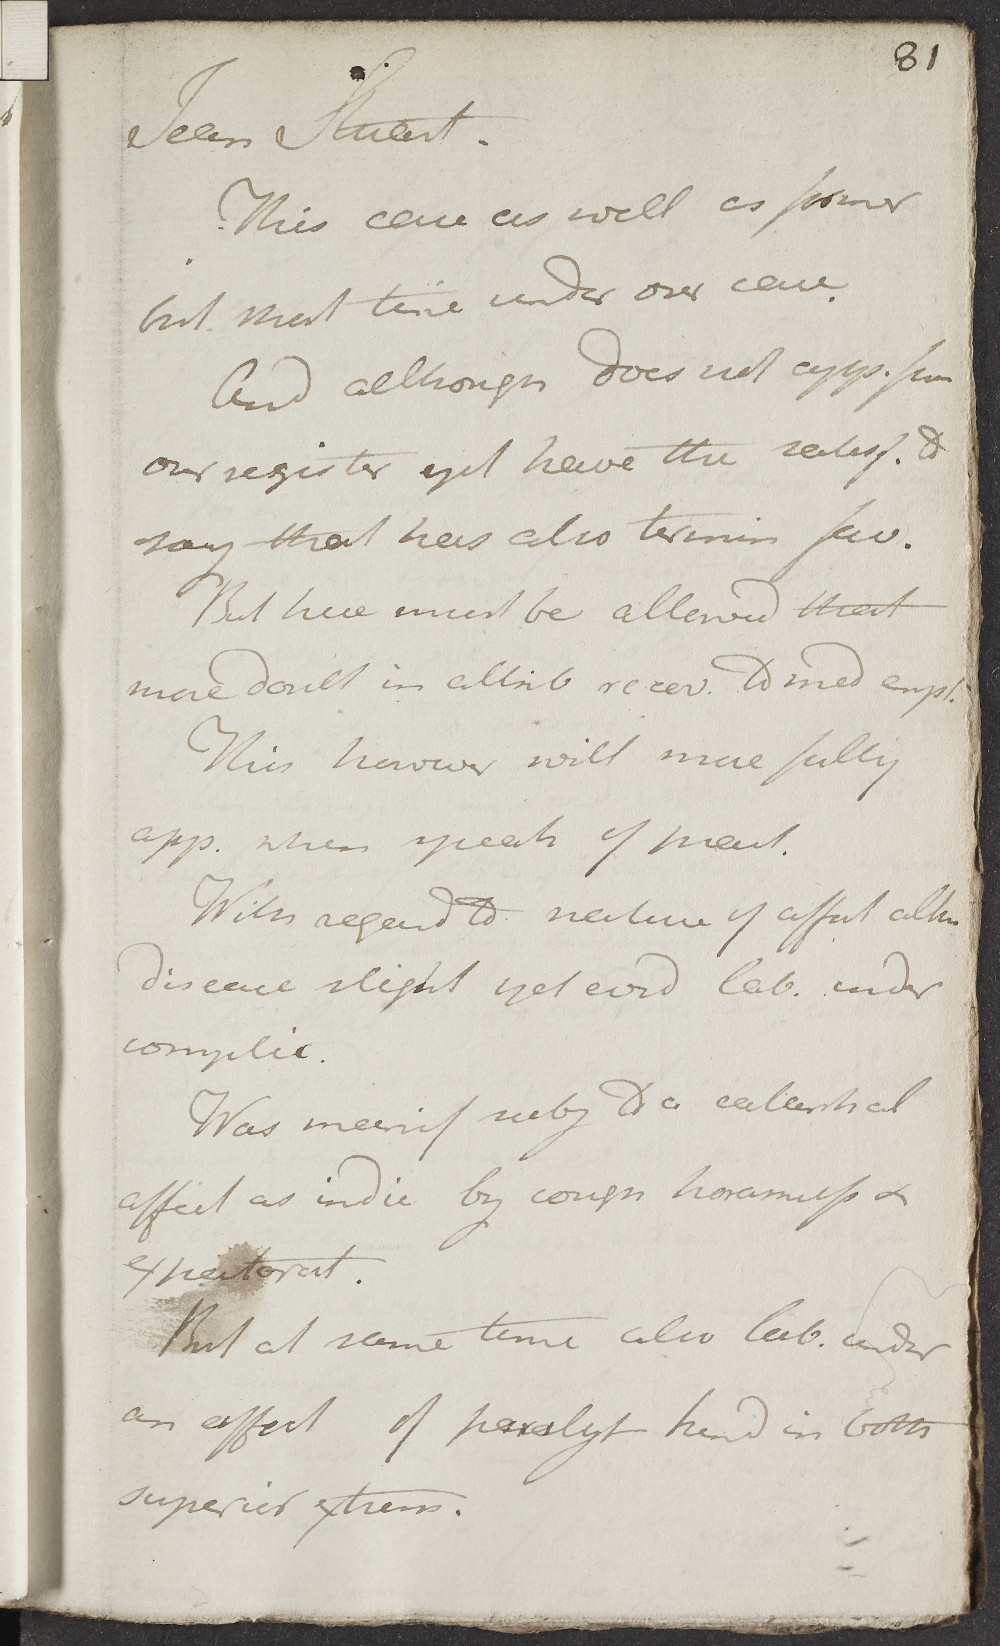 81
Jean Stuart.
This case as well as former
but short time under our care.
And although does not app. from
our register yet have the satisf. to
say that has also termin fav.
But here must be allowed that
more doubt in attrib recov. to med empl.
This however will more fully
app. when speak of pract.
With regard to nature of affect altho
disease slight yet evid lab. under
complic.
Was manif subj to a catarrhal
affect as indic by cough hoarseness &
expectorat.
But at same time also lab. under
an affect of paralyt kind in both
superior extrem.